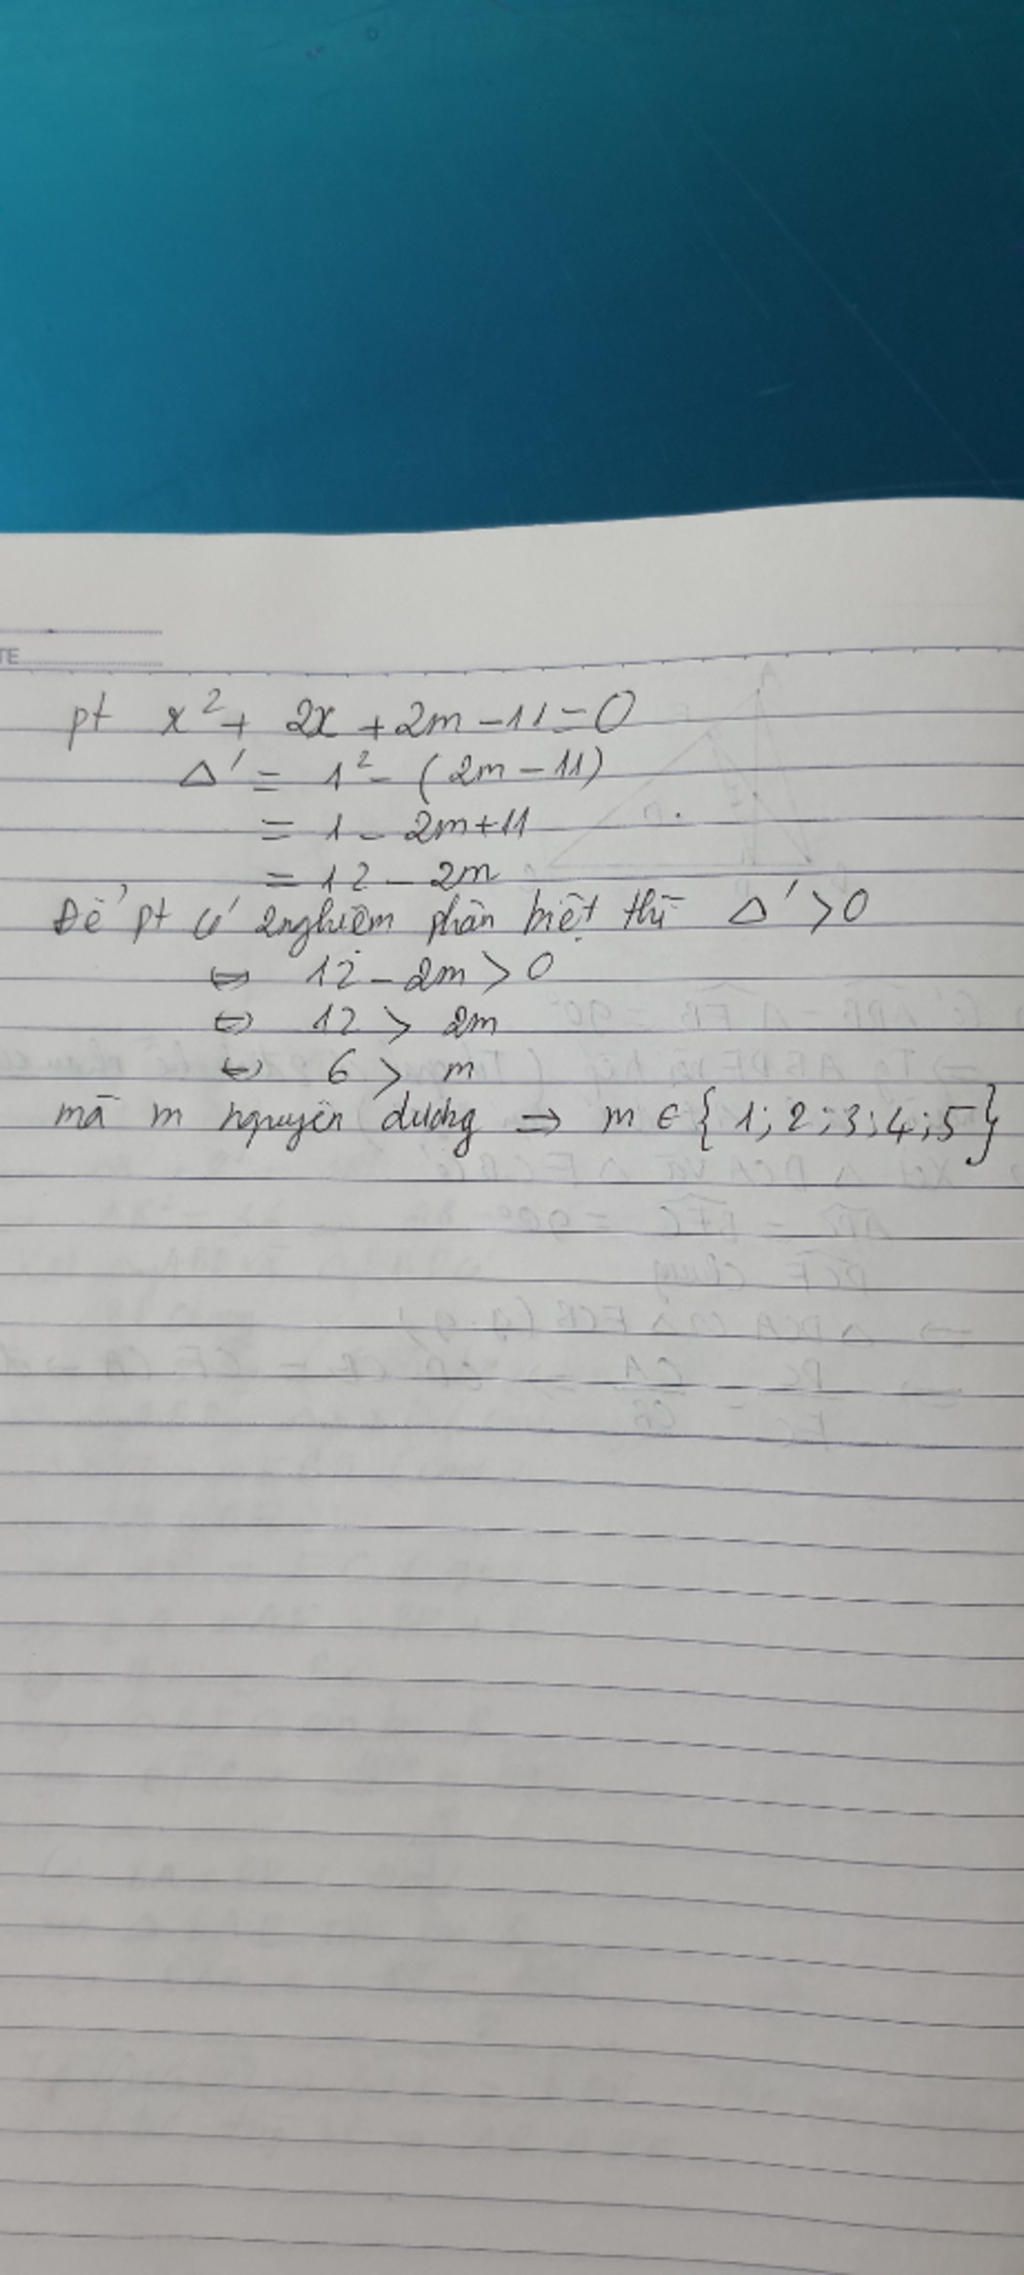 TE
pt x² + 2x + 2m - 11 = 0
Δ' = 1² - (2m - 11)
= 1 - 2m + 11
= 12 - 2m
Để pt có 2 nghiệm phân biệt thì Δ' > 0
⇔ 12 - 2m > 0
⇔ 12 > 2m
⇔ 6 > m
mà m nguyên dương ⇒ m ∈ {1; 2; 3; 4; 5}